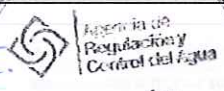 Agencia de
Regulación y
Control del Agua